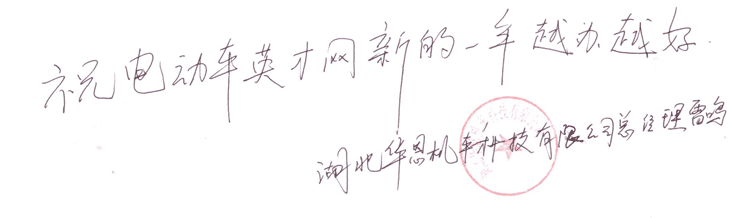 祝电动车英才网新的一年越办越好.
湖北华恩机车科技有限公司总经理雷鸣